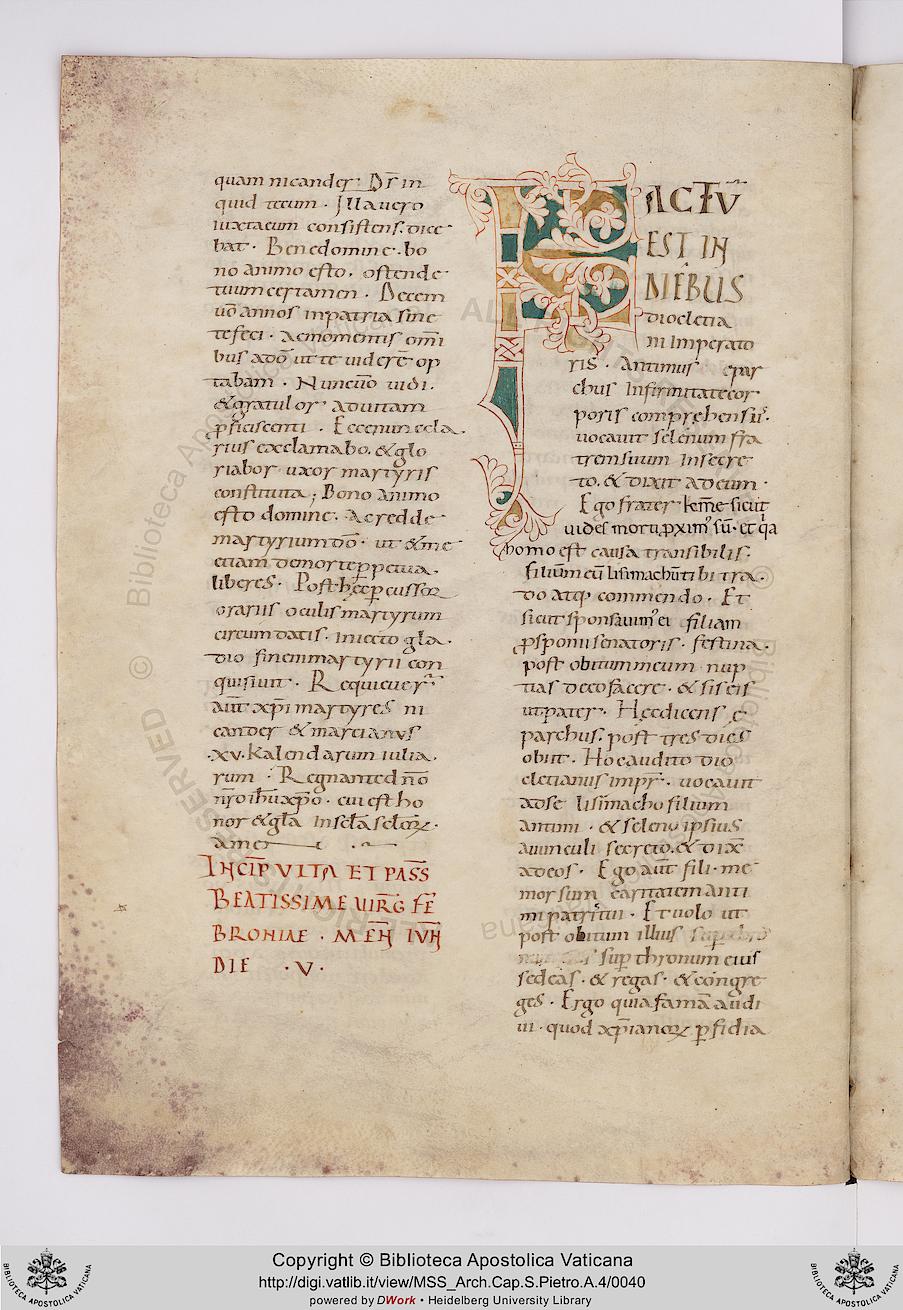 quam nicander. Dr̄ in
quid tecum. Illa uero
iuxta eum consistens. dice
bat. Bene domine. bo
no animo esto. ostende
tuum certamen. Decem
uō annos in patria sine
te feci. ac momentis om̄i
bus a dō ut te uiderē op
tabam. Nunc uō uidi.
& gratulor ad uitam
ꝓficiscenti. Ecce nunc cla
rius exclamabo. & glo
riabor uxor martyris
constituta; Bono animo
esto domine. Ac redde
martyrium dō. ut & me
etiam de morte ꝑpetua.
liberes. Post hęc percussor
orariis oculis martyrum
circumdatis. iniecto gla.
dio finem martyrii con
quisiuit. Requieuer̄
aūt xp̄i martyres ni
cander & marcianus
.xv. Kalendarum iulia.
rum. Regnante dn̄o
nr̄o ih̄u xp̄o. cui est ho
nor & gl̄a in sc̄la sclōꝝ.
amen
INCIP̄ VITA ET PASS̄
BEATISSIME UIRḠ FE
BRONIAE. M̄EN IVN̄
DIE .V.
FACTŪ
EST IN
DIEBUS
diocletia
ni imperato
ris. Antimus epar
chus infirmitate cor
poris comprehensus.
uocauit selenum fra
trem suum in secre
to. & dixit ad eum.
Ego frater kem̄e sicut
uides mortuꝓximꝰ sū. et q̄a
homo est causa transibilis.
filiūm eū lisimachū tibi tra.
do atq; commendo. Et
sicut sponsauimꝰ ei filiam
ꝓsponii senatoris. festina.
post obitum meum nup
tias deco facere. & sis eis
ut pater. Hęc dicens e
parchus. post tres dies
obiit. Hoc audito dio
cletianus impr̄. uocauit
ad se lisimacho filium
antimi. & seleno ipsius
auunculi secreto. & dix̄
ad eos. Ego aūt fili. me
mor sum caritatem anti
mi patris tui. Et uolo ut
post obitum illius
suꝑ thronum eius
sedeas. & regas. & congre
ges. Ergo quia famā audi
ui. quod xp̄ianoꝝ ꝑfidia
Copyright © Biblioteca Apostolica Vaticana
http://digi.vatlib.it/view/MSS_Arch.Cap.S.Pietro.A.4/0040
powered by DWork • Heidelberg University Library